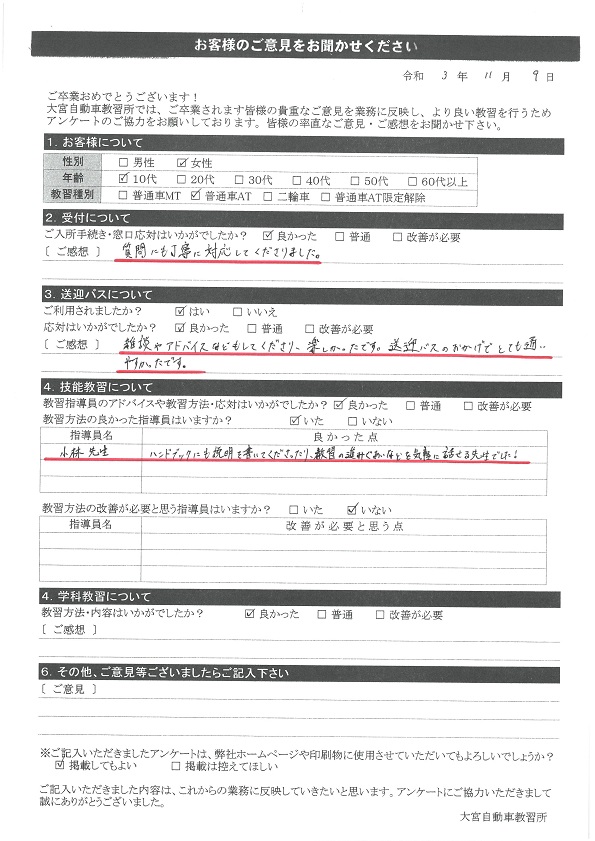 お客様のご意見をお聞かせください
令和 3 年 11 月 9 日
ご卒業おめでとうございます！
大宮自動車教習所では、ご卒業されます皆様の貴重なご意見を業務に反映し、より良い教習を行うため
アンケートのご協力をお願いしております。皆様の率直なご意見・ご感想をお聞かせ下さい。
1. お客様について
性別 □ 男性 ☑ 女性
年齢 ☑ 10代 □ 20代 □ 30代 □ 40代 □ 50代 □ 60代以上
教習種別 □ 普通車MT ☑ 普通車AT □ 二輪車 □ 普通車AT限定解除
2. 受付について
ご入所手続き・窓口応対はいかがでしたか？ ☑ 良かった □ 普通 □ 改善が必要
〔 ご感想 〕 質問にも丁寧に対応してくださりました。
3. 送迎バスについて
ご利用されましたか？ ☑ はい □ いいえ
応対はいかがでしたか？ ☑ 良かった □ 普通 □ 改善が必要
〔 ご感想 〕 雑談やアドバイスなどもしてくださり、楽しかったです。送迎バスのおかげでとても通い
やすかったです。
4. 技能教習について
教習指導員のアドバイスや教習方法・応対はいかがでしたか？ ☑ 良かった □ 普通 □ 改善が必要
教習方法の良かった指導員はいますか？ ☑ いた □ いない
指導員名 良かった点
小林 先生 ハンドブックにも説明を書いてくださったり、教習の進みぐあいなどを気軽に話せる先生でした！
教習方法の改善が必要と思う指導員はいますか？ □ いた ☑ いない
指導員名 改善が必要と思う点
4. 学科教習について
教習方法・内容はいかがでしたか？ ☑ 良かった □ 普通 □ 改善が必要
〔 ご感想 〕
6. その他、ご意見等ございましたらご記入下さい
〔 ご意見 〕
※ご記入いただきましたアンケートは、弊社ホームページや印刷物に使用させていただいてもよろしいでしょうか？
☑ 掲載してもよい □ 掲載は控えてほしい
ご記入いただきました内容は、これからの業務に反映していきたいと思います。アンケートにご協力いただきまして
誠にありがとうございました。
大宮自動車教習所